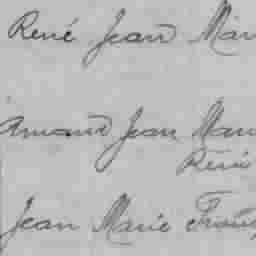 René Jean Mar
Amand Jean Mar
René
Jean Marie Franç